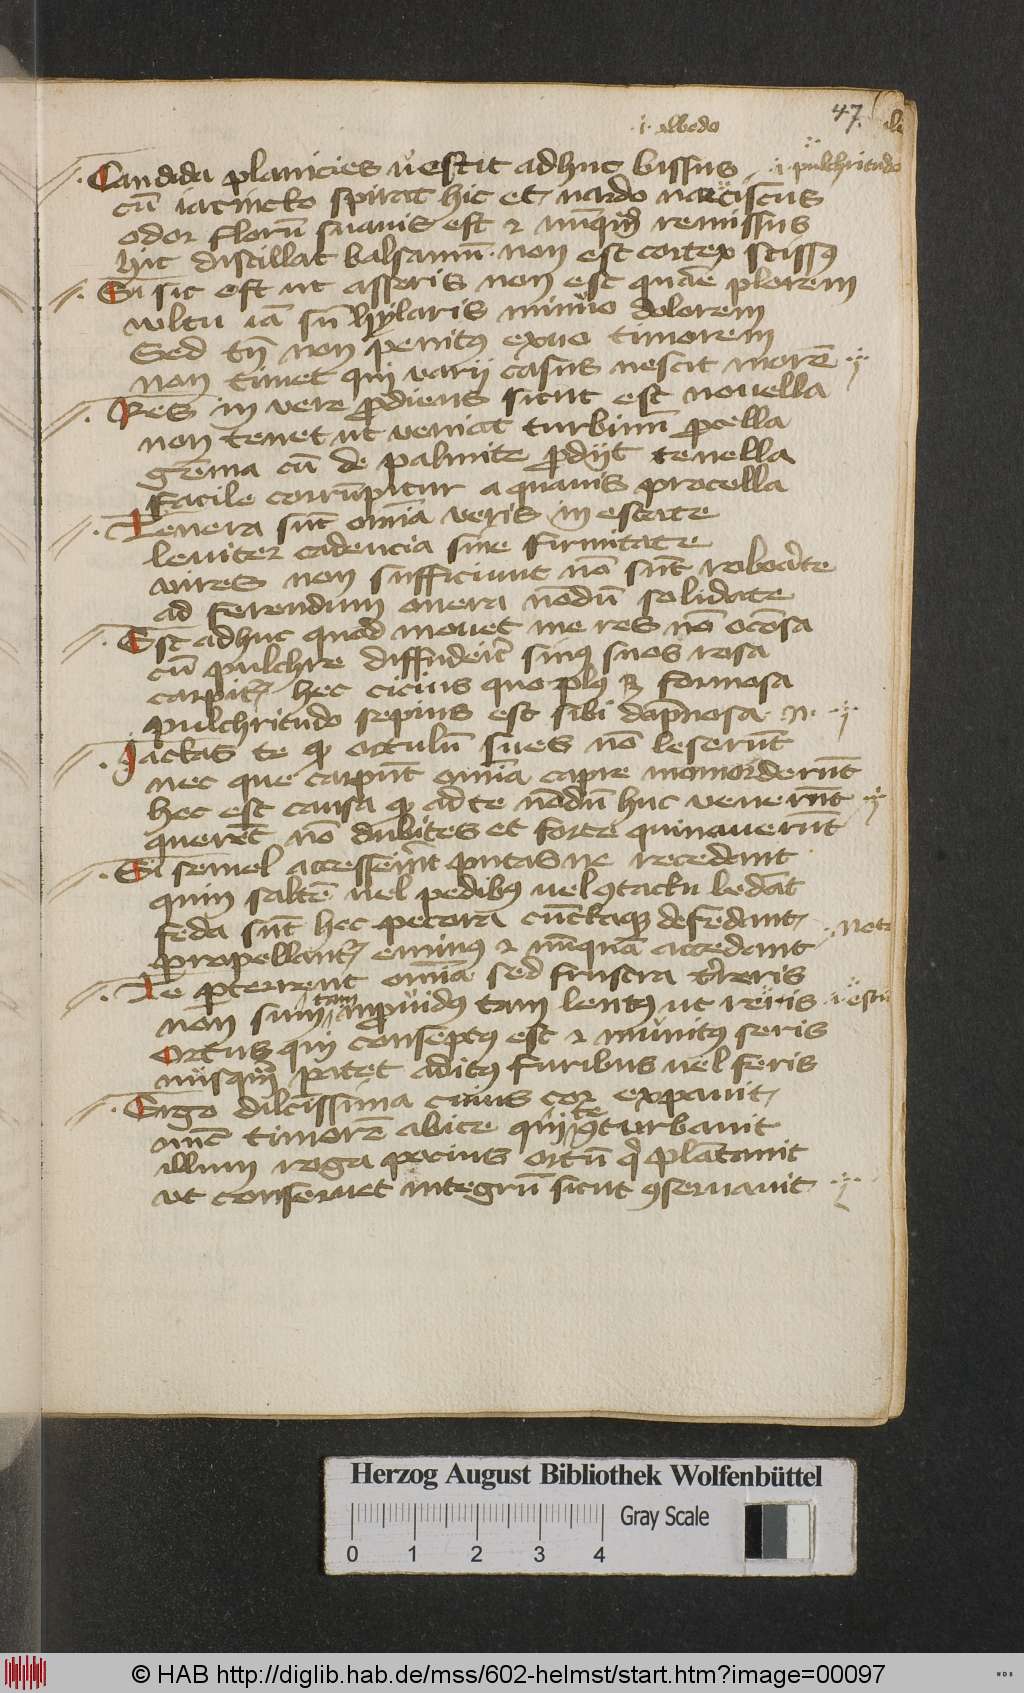 47
.i. albedo
Candida planicies vestit adhuc bissus .i. pulchritudo
cū iacincto spirat hic et nardo narciscus
odor florū suauis est ⁊ nūq̄ remissus
hic distillat balsamū non est cortex scissꝰ
Si sic est ut asseris non est quare plorem
vultu iā sū hylaris minuo dolorem
Sed tn̄ non penitꝰ exuo timorem
non timet qui varij casus nescit morē
Res in vere ꝓdiens sicut est nouella
non tenet ut veniat turbinū ꝓcella
gēma cū de palmite ꝓdijt tenella
facile corrūpitur a quauis procella
Tenera sūt om̄ia veris in estate
leuiter cadencia sine firmitate
vires non sufficiunt nō sūt roborate
ad ferendum onera nōdū solidate
Est adhuc quod mouet me res nō ociosa
cū pulchre diffuderit sinꝰ suos rosa
carpit~ hec cicius quo plꝰ formosa
pulchritudo sepius est sibi dāpnosa
Iactas te ꝙ ortulū sues nō leserūt
nec que carpūt om̄ia capre momorderūt
hec est causa ꝙ ad te nōdū huc venerūt
querēt nō dubites et forte quinauerūt
Si semel accesserīt putas ne recedant
quin saltē uel pedibꝰ uel ꝯtactu ledāt
feda sūt hec pecora cūctaqꝫ defedant nota
propellant~ eminꝰ ⁊ nūquā accedant
Te ꝑterrent om̄ia sed frustra t̄reris
non sum tam inprouidꝰ tam lentꝰ ut reris
Ortus qui conseptꝰ est ⁊ munitꝰ seris
nusq̄ patet aditꝰ furibus uel feris
Ergo dulcissima cuius cor expauit
nūc timorē abice qui te ꝯturbauit
illum roga pocius ortū q̄ plātauit
vt conseruet integrū sicut ꝯseruauit
Herzog August Bibliothek Wolfenbüttel
0 1 2 3 4
Gray Scale
© HAB http://diglib.hab.de/mss/602-helmst/start.htm?image=00097